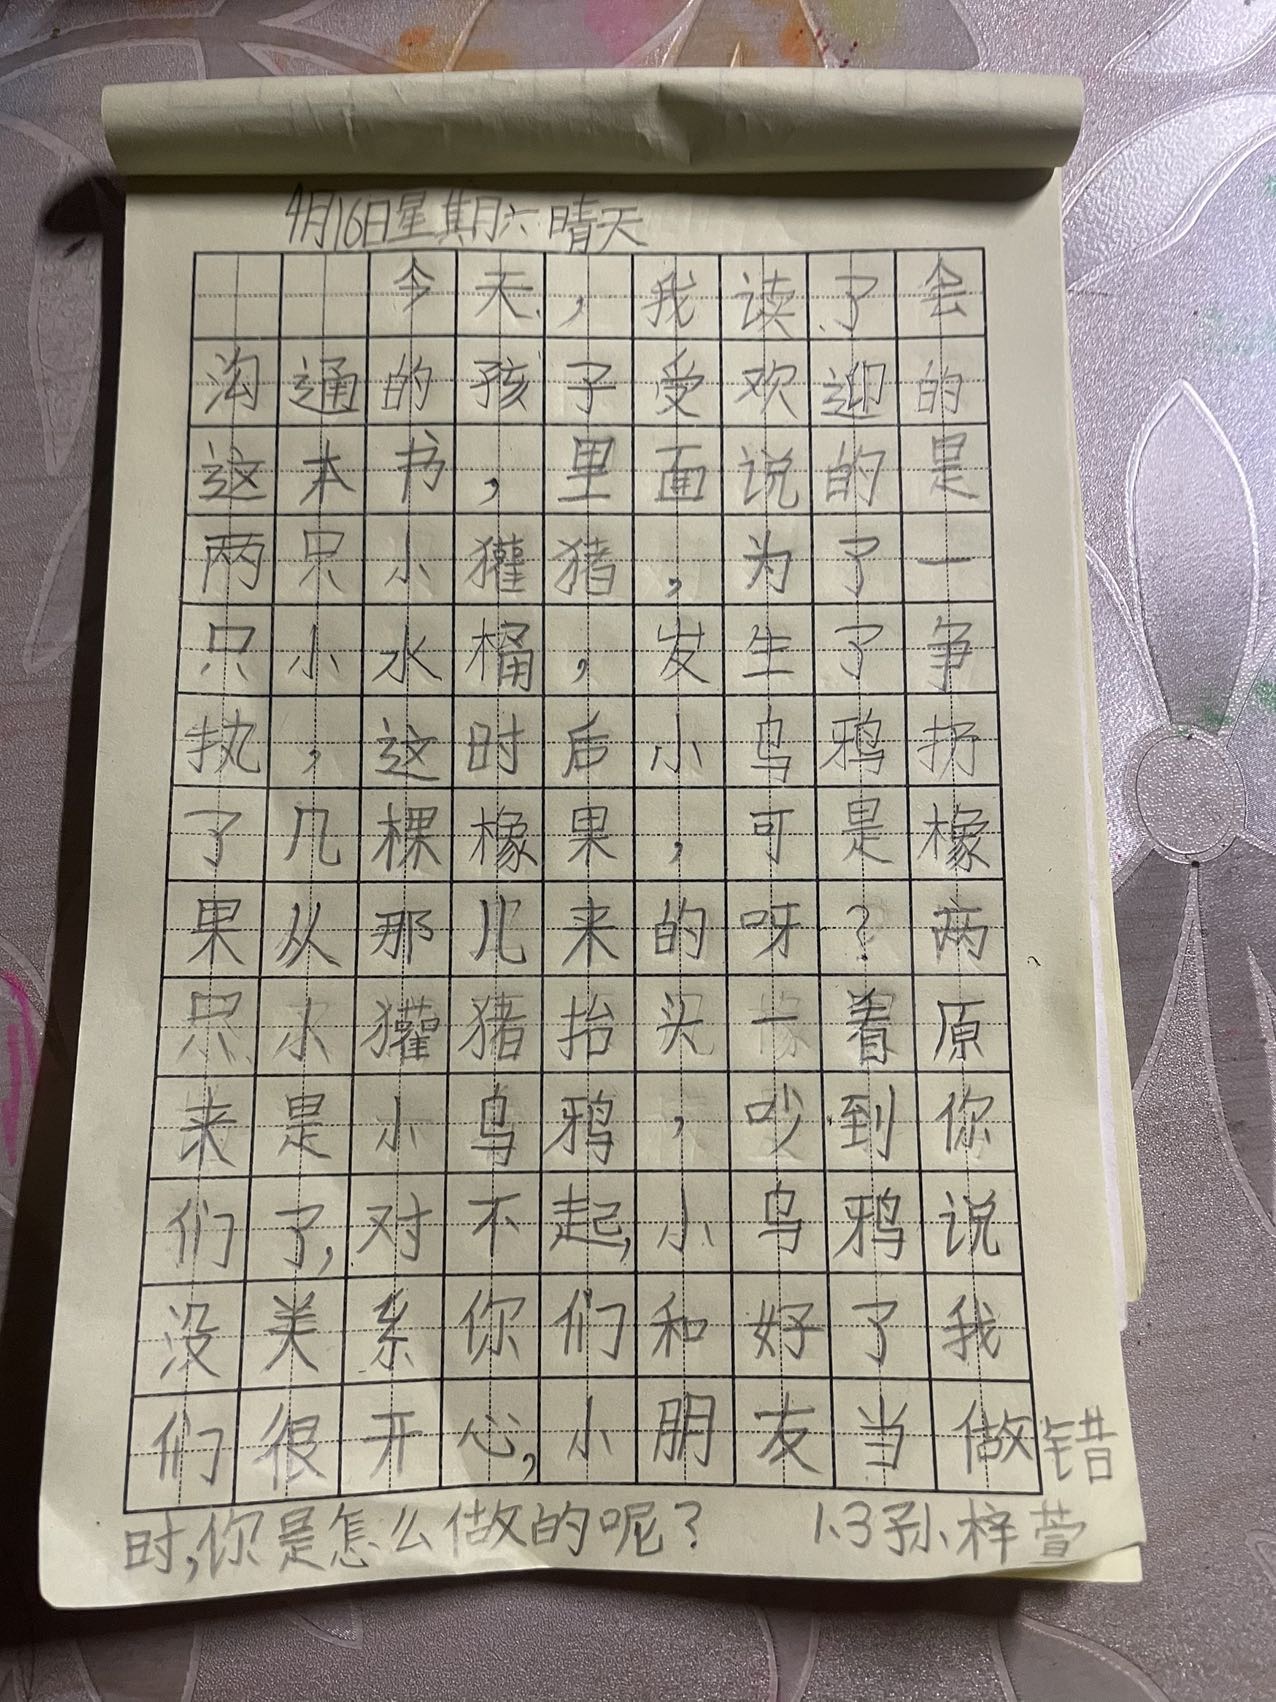 4月16日星期六 晴天
今天，我读了会
沟通的孩子受欢迎的
这本书，里面说的是
两只小獾猪，为了一
只小水桶，发生了争
执，这时后小乌鸦扔
了几棵橡果，可是橡
果从那儿来的呀？两
只小獾猪抬头一看原
来是小乌鸦，吵到你
们了，对不起，小乌鸦说
没关系你们和好了我
们很开心，小朋友当做错
时，你是怎么做的呢？ 1.3孙梓萱